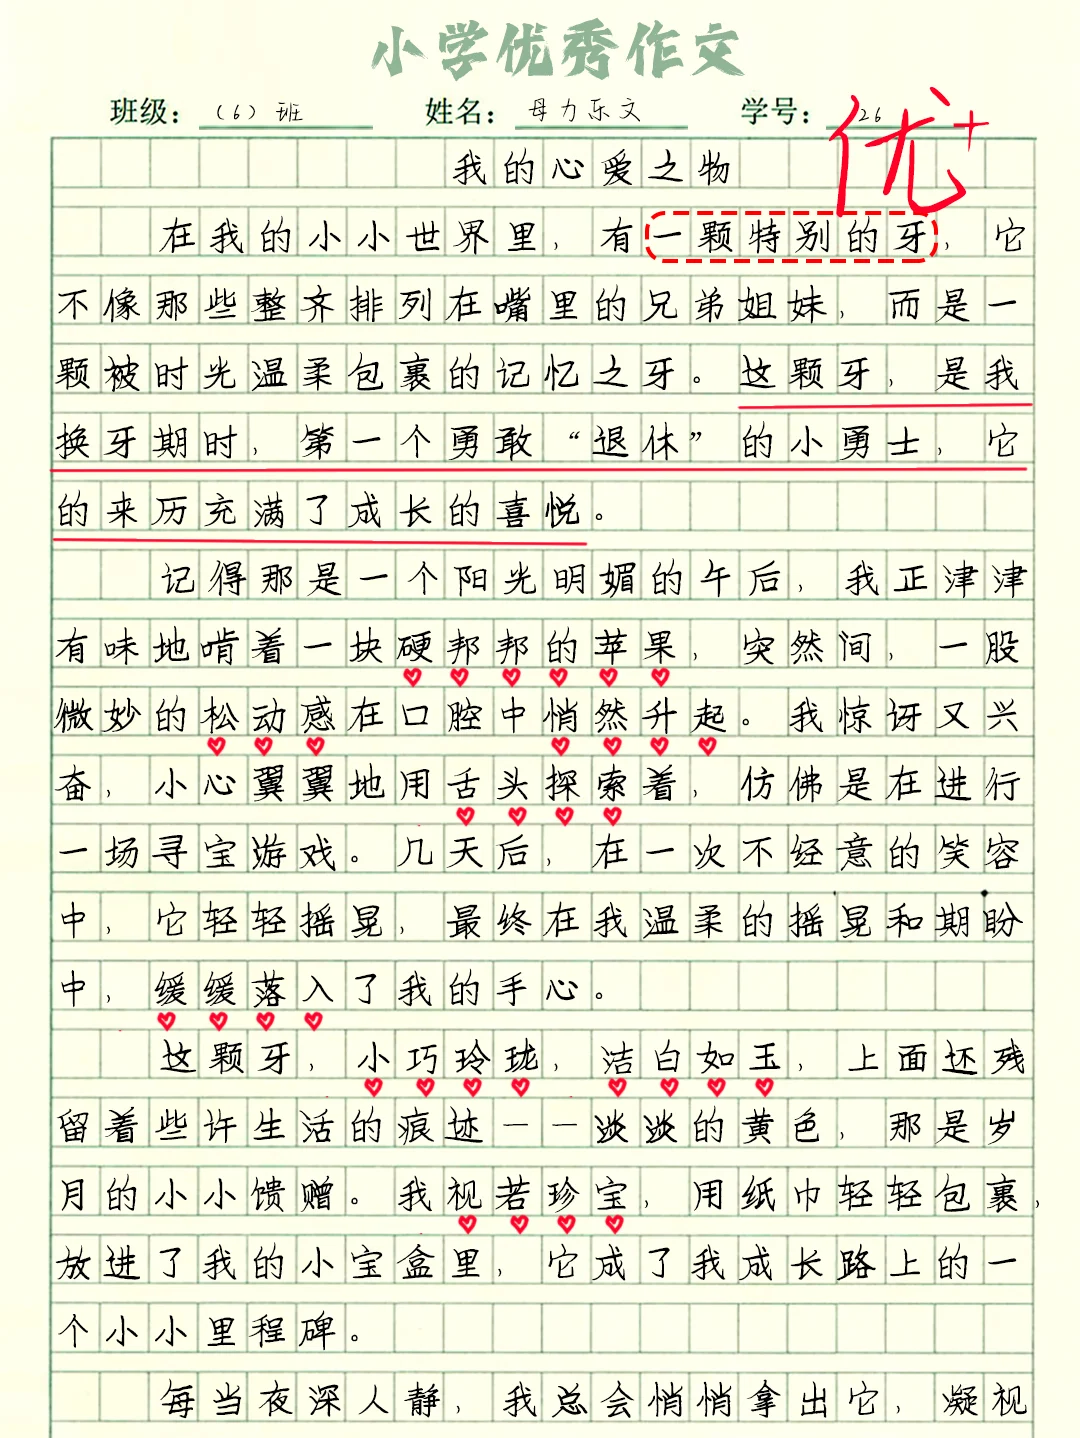 小学优秀作文
班级：（6）班 姓名：母力乐文 学号：26
优+
我的心爱之物
在我的小小世界里，有一颗特别的牙，它
不像那些整齐排列在嘴里的兄弟姐妹，而是一
颗被时光温柔包裹的记忆之牙。这颗牙，是我
换牙期时，第一个勇敢“退休”的小勇士，它
的来历充满了成长的喜悦。
记得那是一个阳光明媚的午后，我正津津
有味地啃着一块硬邦邦的苹果，突然间，一股
微妙的松动感在口腔中悄然升起。我惊讶又兴
奋，小心翼翼地用舌头探索着，仿佛是在进行
一场寻宝游戏。几天后，在一次不经意的笑容
中，它轻轻摇晃，最终在我温柔的摇晃和期盼
中，缓缓落入了我的手心。
这颗牙，小巧玲珑，洁白如玉，上面还残
留着些许生活的痕迹——淡淡的黄色，那是岁
月的小小馈赠。我视若珍宝，用纸巾轻轻包裹，
放进了我的小宝盒里，它成了我成长路上的一
个小小里程碑。
每当夜深人静，我总会悄悄拿出它，凝视